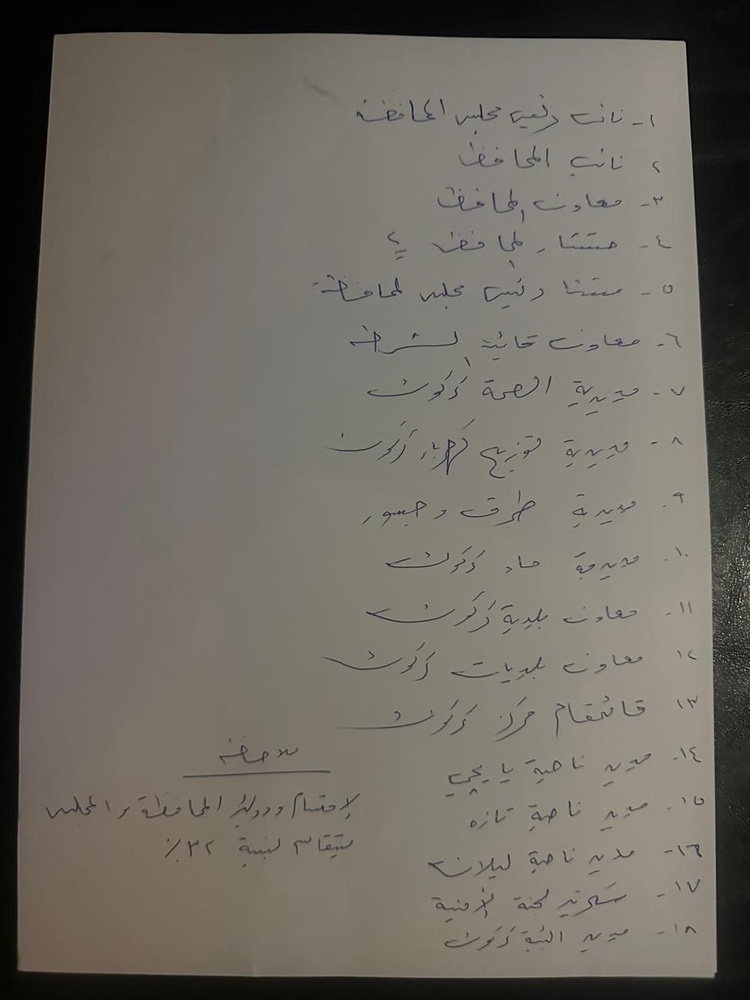 ١- نائب رئيس مجلس المحافظة
٢ نائب المحافظ
٣- معاون المحافظ
٤- مستشار المحافظ
٥- رئيس مجلس المحافظة
٦- معاون الشرطة
٧- مديرية الصحة كركوك
٨- مديرية توزيع كهرباء كركوك
٩- مديرية طرق و جسور
١٠- مديرية ماء كركوك
١١- معاون بلدية كركوك
١٢- معاون بلديات كركوك
١٣- قائمقام مركز كركوك
١٤- مدير ناحية يايجي
١٥- مدير ناحية تازه
١٦- مدير ناحية ليلان
١٧- لجنة الأمنية
١٨- مدير كركوك
ملاحظة
المحافظة و المجلس
بنسبة ٣٢٪